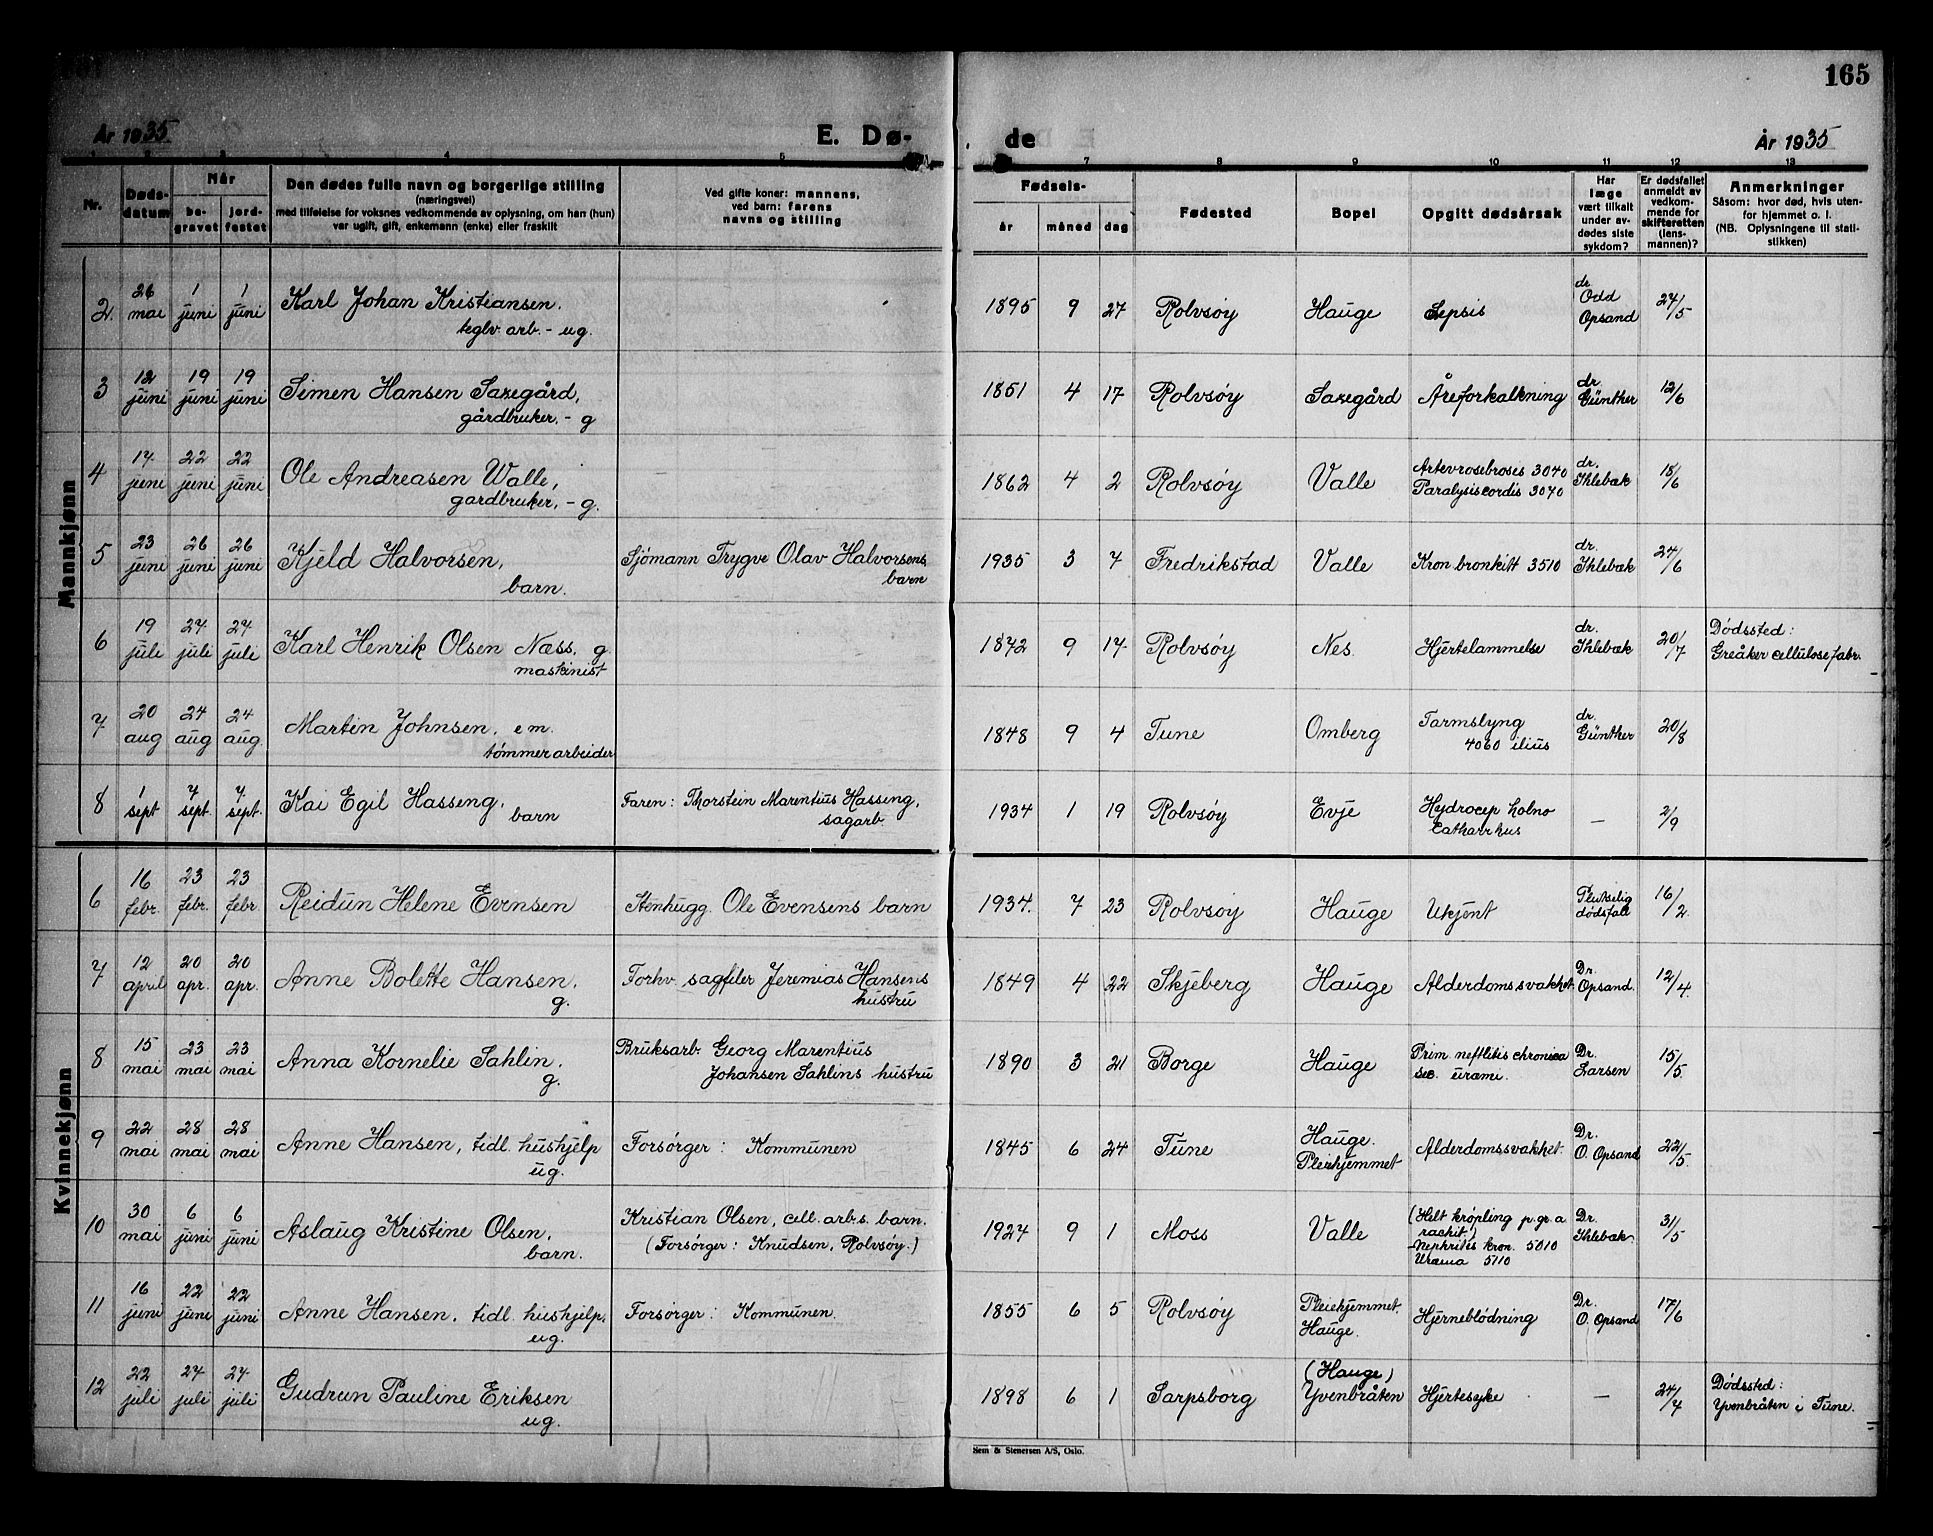 165
År 1935
E. Dø-
de
År 1935
1 2 3 4 5 7 8 9 10 11 12 13
Nr.
Døds-
datum
Når
be-
gravet
jord-
festet
Den dødes fulle navn og borgerlige stilling
(næringsvei)
med tilføielse for voksnes vedkommende av oplysning, om han (hun)
var ugift, gift, enkemann (enke) eller fraskilt
Ved gifte koner: mannens,
ved barn: farens
navn og stilling
Fødsels-
år måned dag
Fødested
Bopel
Opgitt dødsårsak
Har
læge
vært tilkalt
under av-
dødes siste
sykdom?
Er dødsfallet
anmeldt av
vedkom-
mende for
skifteretten
(lens-
mannen)?
Anmerkninger
Såsom: hvor død, hvis uten-
for hjemmet o. l.
(NB. Oplysningene til stati-
stikken)
Mannkjønn
2. 26 mai 1 juni 1 juni Karl Johan Kristiansen, 1895 9 27 Rolvsøy Hauge Sepsis dr. Odd Opsand 27/5
teglv. arb. - ug.
3 12 juni 19 juni 19 juni Simen Hansen Saxegård, 1851 4 17 Rolvsøy Saxegård Åreforkalkning dr. Günther 12/6
gårdbruker, - g
4 17. juni 22 juni 22 juni Ole Andreasen Walle, 1862 4 2 Rolvsøy Valle Paralysis cordis 3070 dr. Ihlebæk 18/6
gardbruker, - g.
5 23 juni 26 juni 26 juni Kjeld Halvorsen, Sjömann Trygve Olav Halvorsens 1935 3 7 Fredrikstad Valle Kron bronkitt 3510 dr. Ihlebæk 24/6
barn. barn
6 19 juli 27. juli 27. juli Karl Henrik Olsen Næss, g. 1872 9 17. Rolvsøy Nes. Hjertelammelse dr. Ihlebæk 20/7 Dødssted:
maskinist Greåker cellulosefabr.
7 20 aug 24 aug 24 aug. Martin Johnsen, em. 1848 9 4 Tune Omberg Tarmslyng dr. Günther 20/8
tömmerarbeider 4060 ilius
8 1 sept 7 sept. 7. sept. Kai Egil Hasseng, Faren: Thorstein Marentius Hasseng, 1934 1 19 Rolvsøy Evje Hydrocep holno — 2/9
barn sagarb. Catharrhus
Kvinnekjønn
6 16 febr. 23 febr. 23 febr. Reidun Helene Evensen Stenhugg. Ole Evensens barn 1934. 7 23 Rolvsøy Hauge Ukjent Plutselig dødsfall 16/2.
7 12 april 20 apr. 20 apr. Anne Bolette Hansen, Forhv. sagfiler Jeremias Hansens 1849 4 22 Skjeberg Hauge Alderdomssvakhet. Dr. Opsand. 12/4.
g. hustru
8 15 mai 23 mai 23 mai Anna Kornelie Sahlin, Bruksarb. Georg Marentius 1890 3 21 Borge Hauge Prim. neftlitis chronica Dr. Larsen 15/5.
g. Johansen Sahlins hustru sec. urämi.
9 22 mai 28 mai 28 mai Anne Hansen, tidl. hushjelp Forsørger: Kommunen 1845 6 24 Tune Hauge. Alderdomssvakhet. Dr. O. Opsand 22/5.
ug. Pleiehjemmet
10 30 mai 6 juni 6 juni Aslaug Kristine Olsen, Kristian Olsen, cell. arb.s barn. 1924 9 1 Moss Valle (Helt krøpling p. gr. a rachit.) Dr. Ihlebæk 31/5
barn. (Forsørger: Knudsen, Rolvsøy.) Nephritis kron. 5010
Uræmia 5110
11 16 juni 22 juni 22 juni Anne Hansen, tidl. hushjelp, Forsørger: Kommunen. 1855 6 5 Rolvsøy Pleiehjemmet, Hjerneblödning Dr. O. Opsand 17/6
ug. Hauge.
12 22 juli 27. juli 27. juli Gudrun Pauline Eriksen 1898 6 1 Sarpsborg (Hauge) Hjertesyke — 24/7 Dødssted:
ug. Yvenbråten Yvenbråten i Tune.
Sem & Stenersen A/S, Oslo.